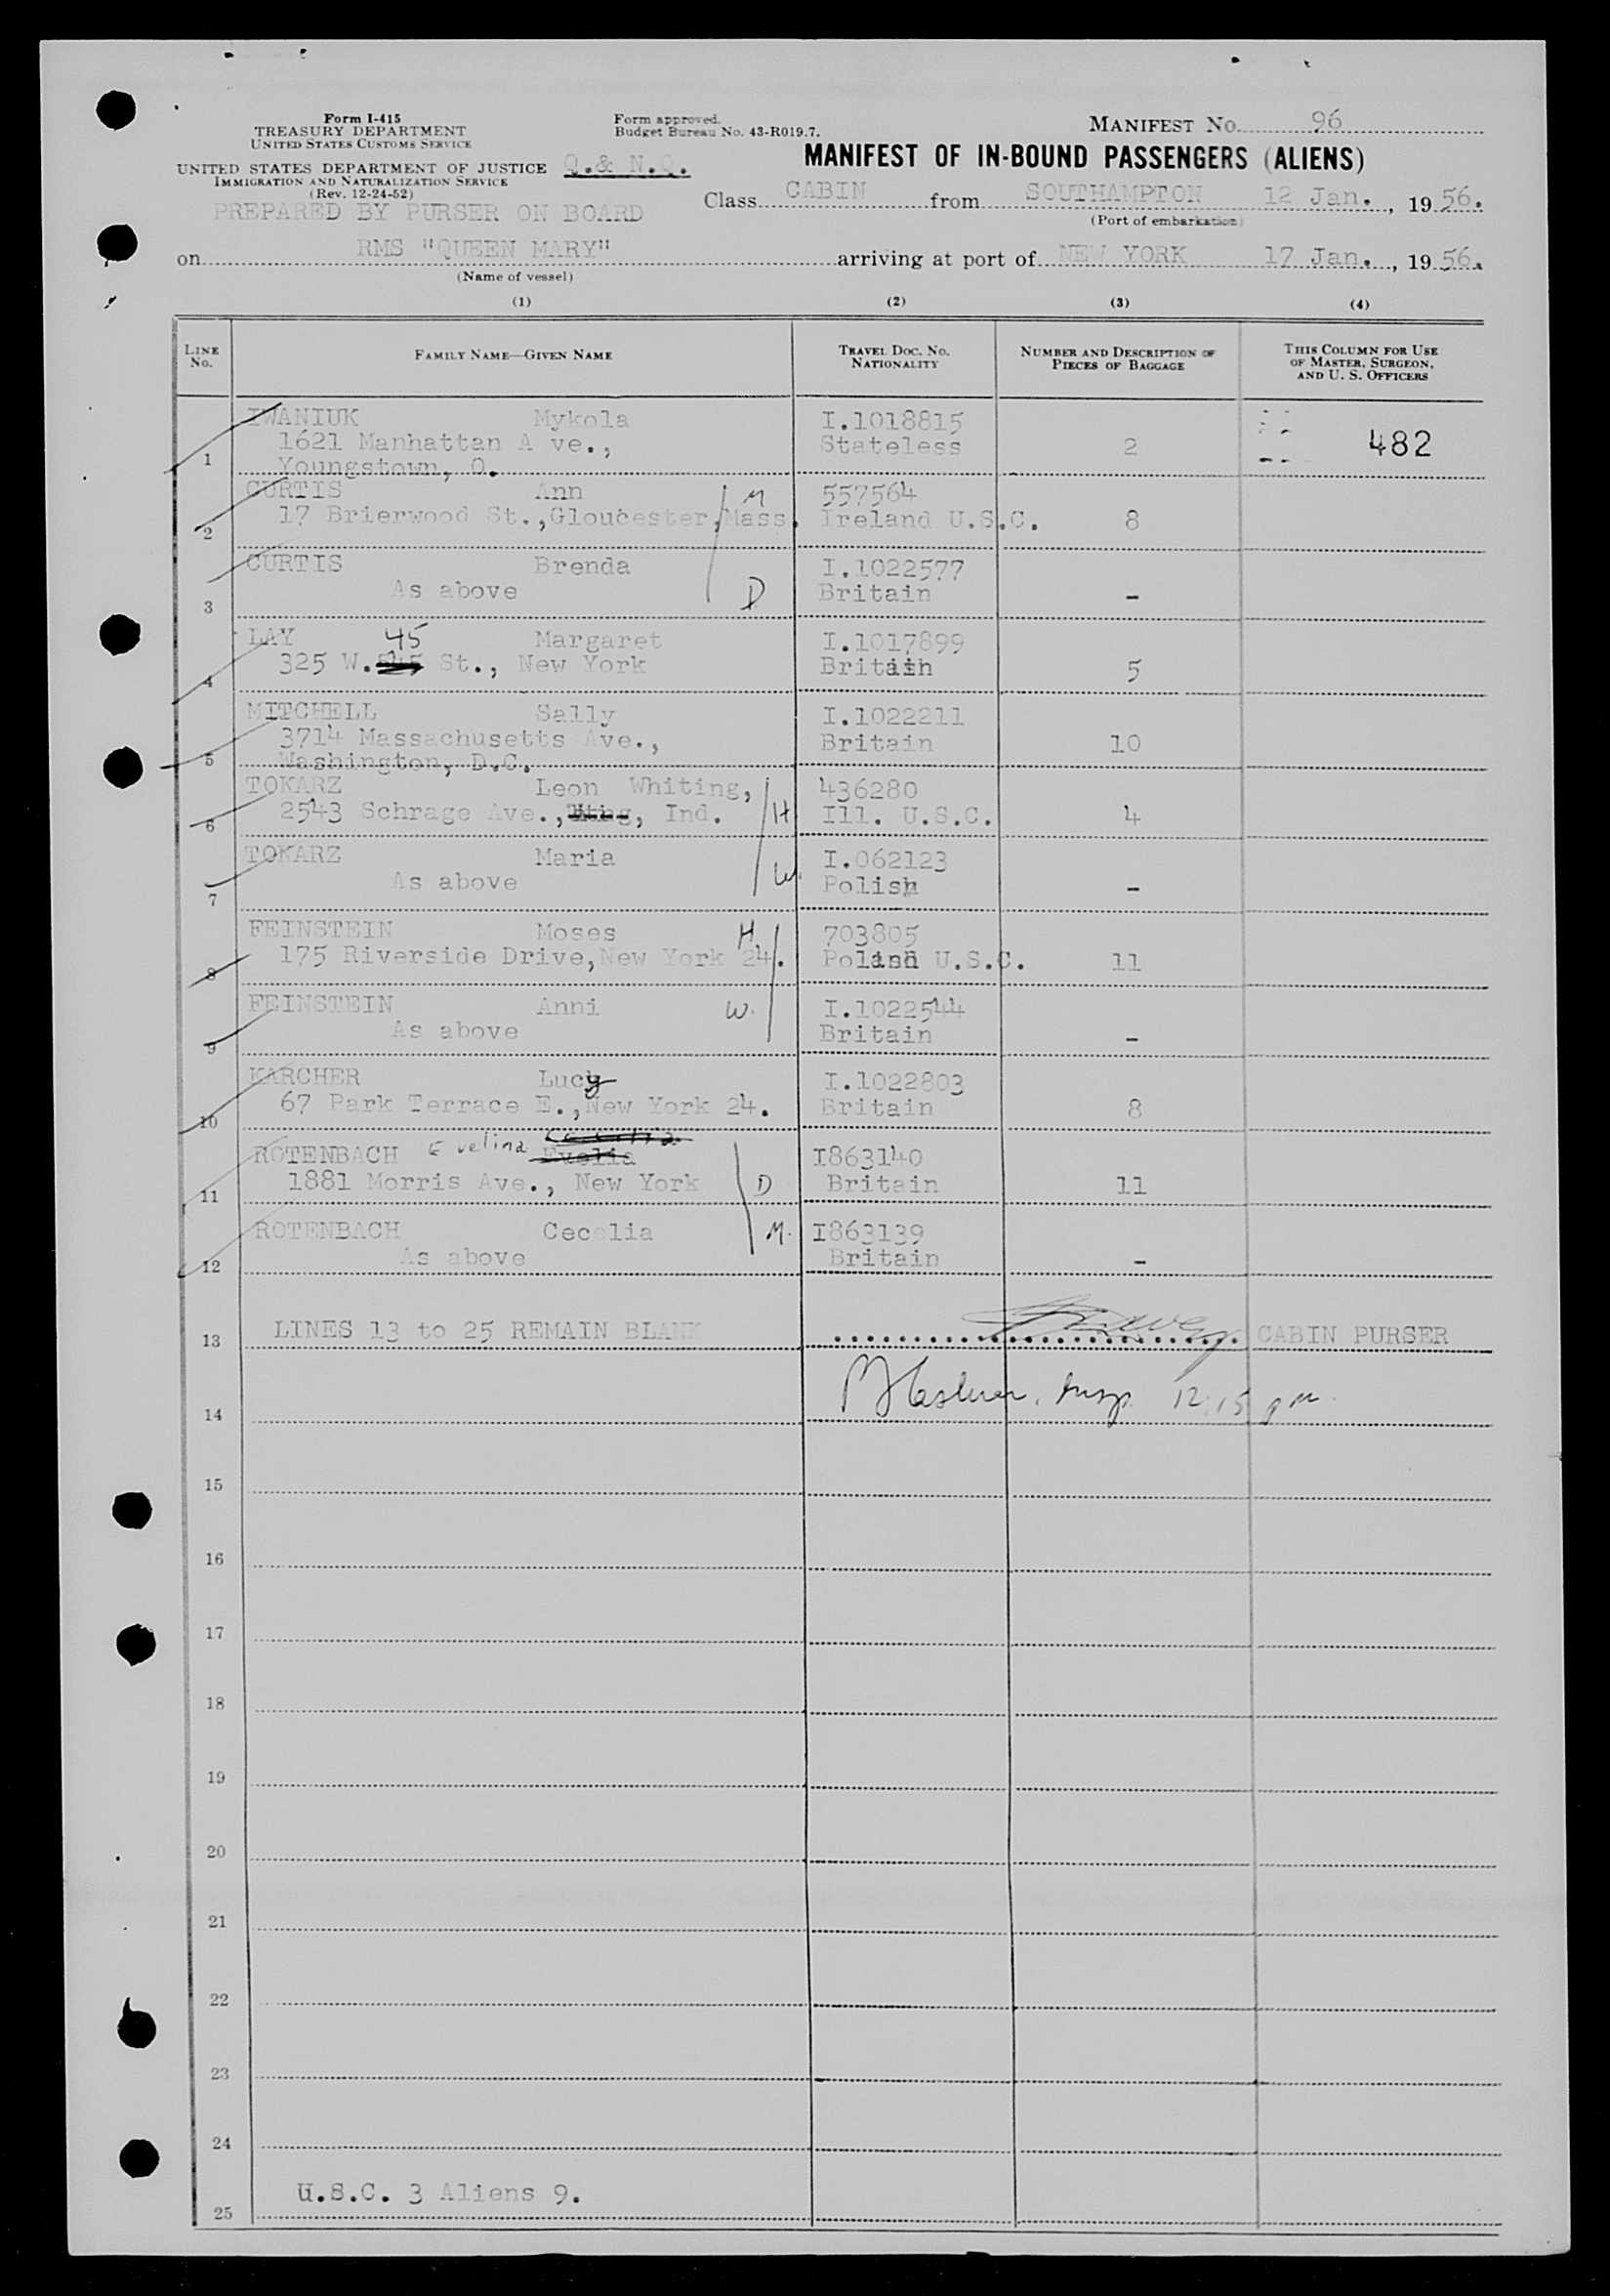 Form I-415
TREASURY DEPARTMENT
UNITED STATES CUSTOMS SERVICE
UNITED STATES DEPARTMENT OF JUSTICE
IMMIGRATION AND NATURALIZATION SERVICE
(Rev. 12-24-52)
PREPARED BY PURSER ON BOARD
Form approved.
Budget Bureau No. 43-R019.7.
Q.& N.Q.
MANIFEST NO. 96
MANIFEST OF IN-BOUND PASSENGERS (ALIENS)
Class CABIN from SOUTHAMPTON 12 Jan., 1956.
(Port of embarkation)
on RMS "QUEEN MARY" arriving at port of NEW YORK 17 Jan., 1956.
(Name of vessel)
(1) (2) (3) (4)
LINE NO. FAMILY NAME—GIVEN NAME TRAVEL DOC. NO. NATIONALITY NUMBER AND DESCRIPTION OF PIECES OF BAGGAGE THIS COLUMN FOR USE OF MASTER, SURGEON, AND U. S. OFFICERS
IWANIUK Mykola I.1018815
1621 Manhattan A ve., Stateless 2 482
1 Youngstown, O.
CURTIS Ann M 557564
2 17 Brierwood St.,Gloucester,Mass. Ireland U.S.C. 8
CURTIS Brenda I.1022577
As above D Britain -
3
LAY 45 Margaret I.1017899
325 W. St., New York Britain 5
4
MITCHELL Sally I.1022211
3714 Massachusetts Ave., Britain 10
5 Washington, D.C.
TOKARZ Leon Whiting, 436280
6 2543 Schrage Ave., , Ind. H Ill. U.S.C. 4
TOKARZ Maria I.062123
As above W. Polish -
7
FEINSTEIN Moses H. 703805
175 Riverside Drive,New York 24. Polish U.S.C. 11
8
FEINSTEIN Anni W. I.1022544
As above Britain -
9
KARCHER Lucy I.1022803
67 Park Terrace E.,New York 24. Britain 8
10
ROTENBACH Evelina Evelia I863140
11 1881 Morris Ave., New York D Britain 11
ROTENBACH Cecelia M. I863139
12 As above Britain -
13 LINES 13 to 25 REMAIN BLANK CABIN PURSER
14 12:15 pm
15
16
17
18
19
20
21
22
23
24
U.S.C. 3 Aliens 9.
25